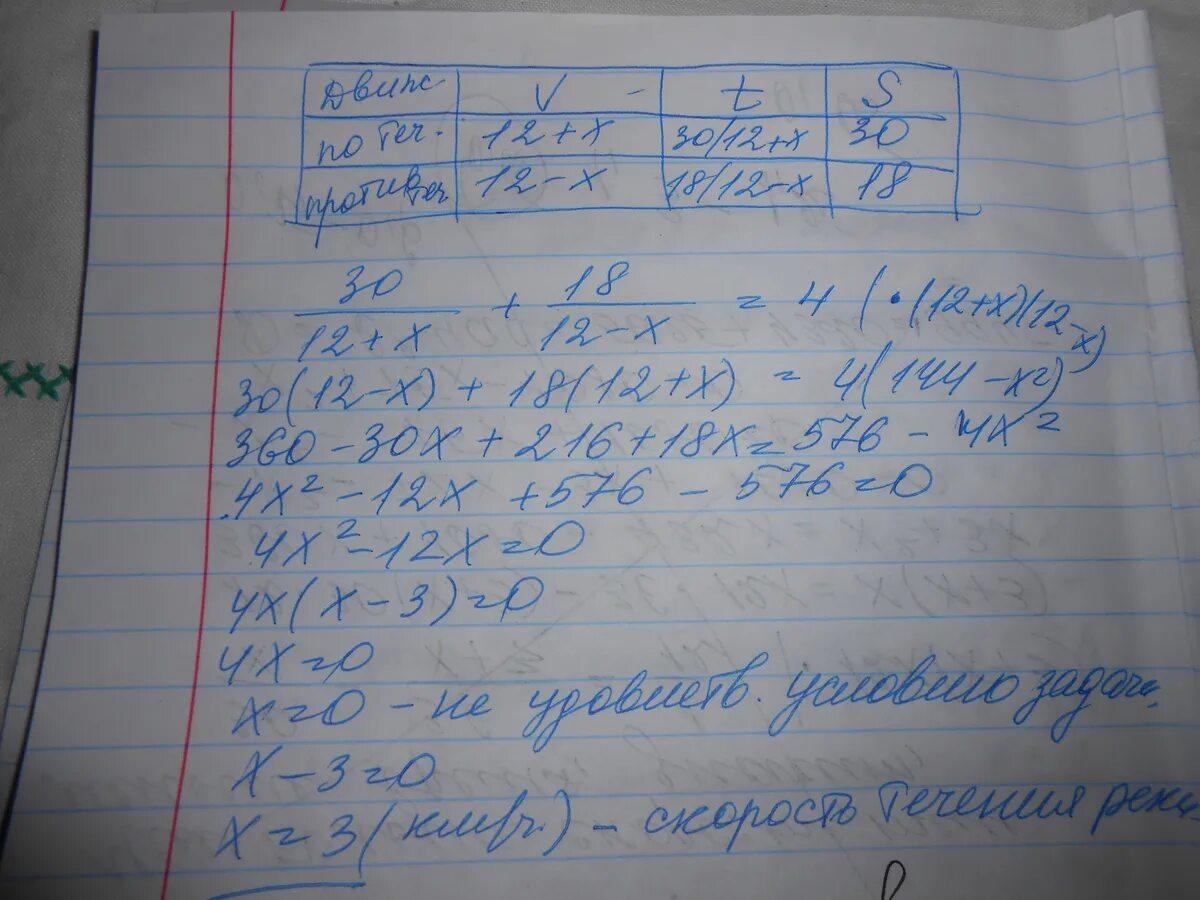 Движ. V t S
по теч. 12+x 30/12+x 30
против теч. 12-x 18/12-x 18
30/(12+x) + 18/(12-x) = 4 | ·(12+x)(12-x)
30(12-x) + 18(12+x) = 4(144-x²)
360-30x+216+18x=576-4x²
4x²-12x+576-576=0
4x²-12x=0
4x(x-3)=0
4x=0
x=0 - не удовлетв. условию задачи,
x-3=0
x=3 (км/ч.) - скорость течения реки